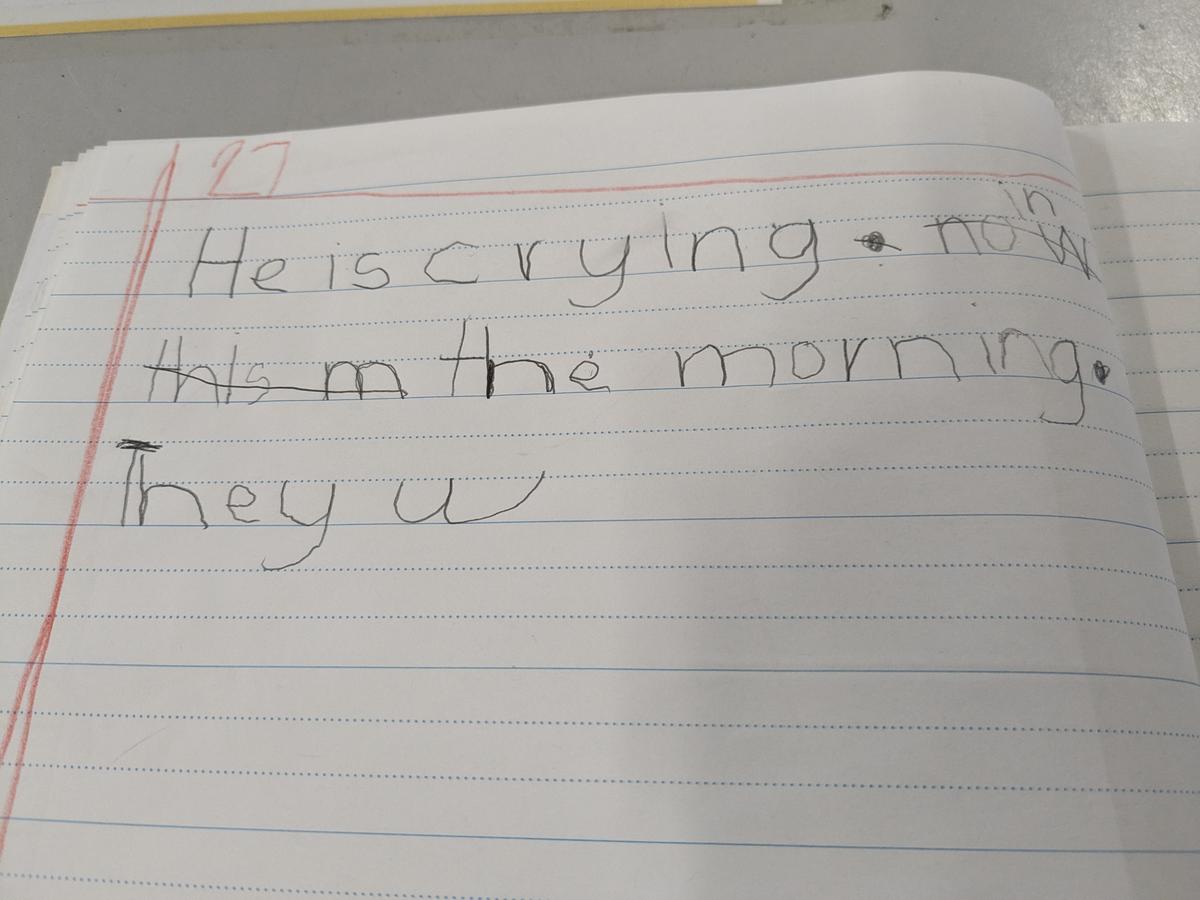 27
He is crying. now in
this m the morning.
They w